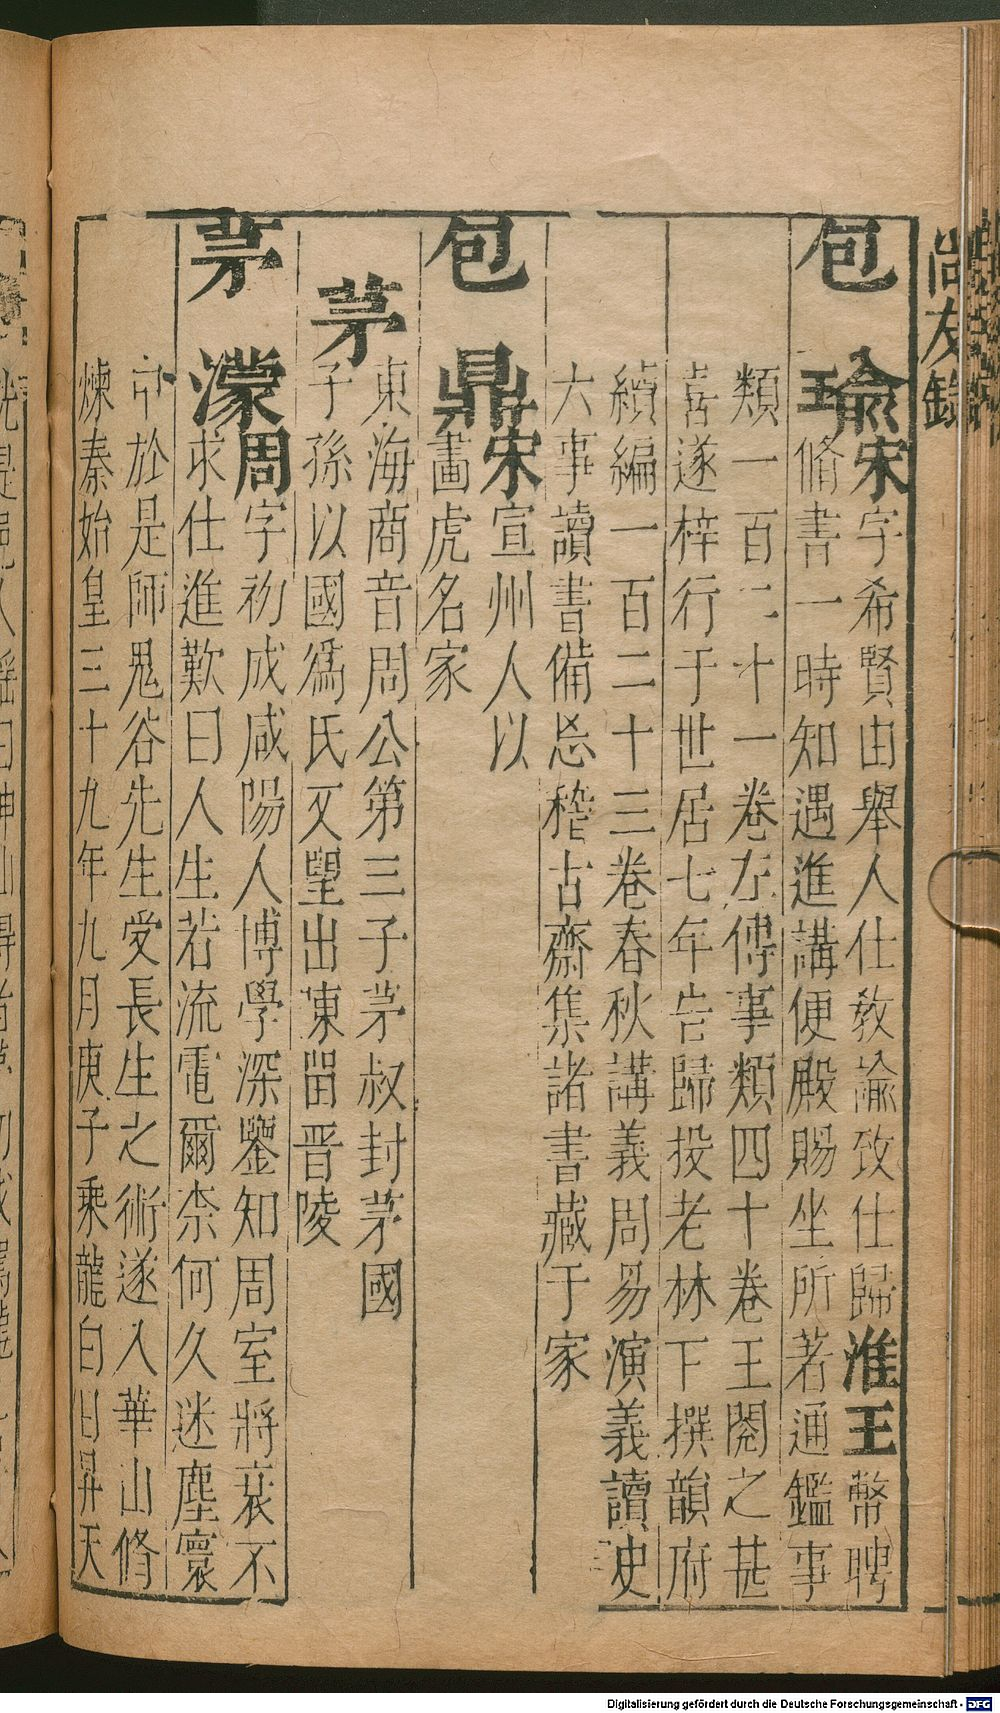 尚友錄
包瑜宋字希賢由舉人仕教諭致仕歸淮王幣聘
脩書一時知遇進講便殿賜坐所著通鑑事
類一百二十一卷左傳事類四十卷王閱之甚
喜遂梓行于世居七年告歸投老林下撰韻府
續編一百二十三卷春秋講義周易演義讀史
大事讀書備忘稽古齋集諸書藏于家
包鼎宋宣州人以
畫虎名家
茅東海商音周公第三子茅叔封茅國
子孫以國爲氏又望出東留晋陵
茅濛周字初成咸陽人博學深鑒知周室將衰不
求仕進歎曰人生若流電爾柰何久迷塵寰
於是師鬼谷先生受長生之術遂入華山修
煉秦始皇三十九年九月庚子乘龍白日昇天
Digitalisierung gefördert durch die Deutsche Forschungsgemeinschaft - DFG